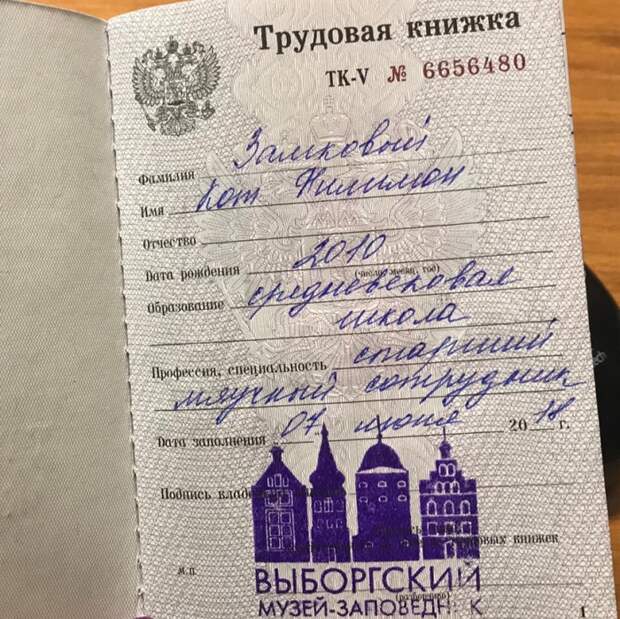 Трудовая книжка
ТК-V № 6656480
Фамилия Замковый
Имя Кот Филимон
Отчество
Дата рождения 2010
(число, месяц, год)
Образование средневековая
школа
Профессия, специальность старший
мяучный сотрудник
Дата заполнения 07 июня 2018 г.
Подпись
книжек
м.п.
ВЫБОРГСКИЙ
МУЗЕЙ-ЗАПОВЕДНИК
1